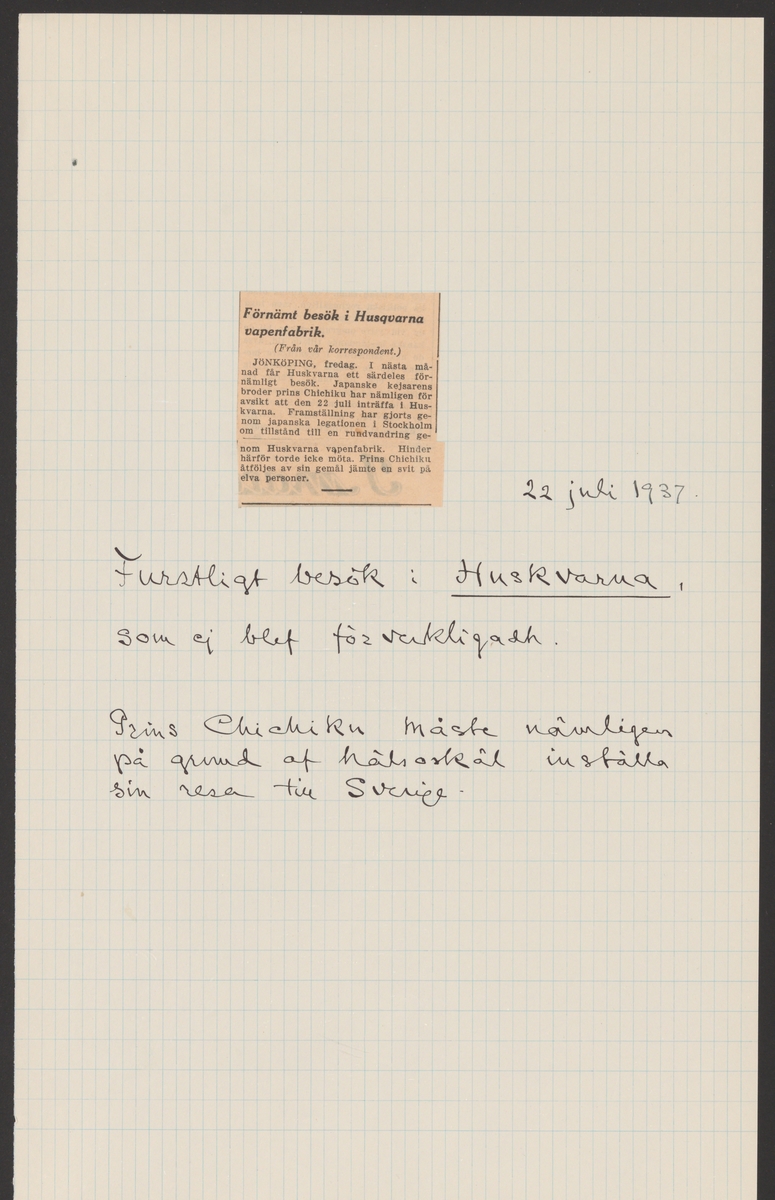 Förnämt besök i Husqvarna
vapenfabrik.
(Från vår korrespondent.)
JÖNKÖPING, fredag. I nästa må-
nad får Huskvarna ett särdeles för-
nämligt besök. Japanske kejsarens
broder prins Chichiku har nämligen för
avsikt att den 22 juli inträffa i Hus-
kvarna. Framställning har gjorts ge-
nom japanska legationen i Stockholm
om tillstånd till en rundvandring ge-
nom Huskvarna vapenfabrik. Hinder
härför torde icke möta. Prins Chichiku
åtföljes av sin gemål jämte en svit på
elva personer.
22 juli 1937.
Furstligt besök i Huskvarna,
som ej blef förverkligadt.
Prins Chichiku måste nämligen
på grund af hälsoskäl inställa
sin resa till Sverige.